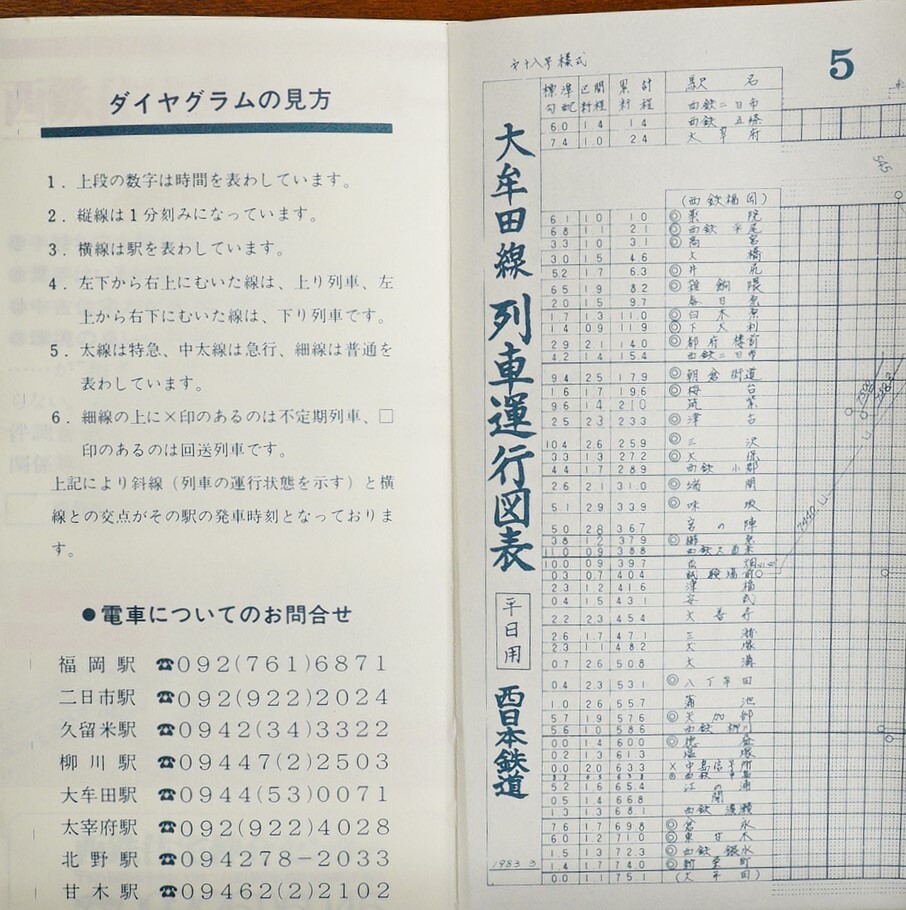 ダイヤグラムの見方
1．上段の数字は時間を表わしています。
2．縦線は1分刻みになっています。
3．横線は駅を表わしています。
4．左下から右上にむいた線は、上り列車、左
上から右下にむいた線は、下り列車です。
5．太線は特急、中太線は急行、細線は普通を
表わしています。
6．細線の上に×印のあるのは不定期列車、□
印のあるのは回送列車です。
上記により斜線（列車の運行状態を示す）と横
線との交点がその駅の発車時刻となっておりま
す。
●電車についてのお問合せ
福岡駅 ☎092(761)6871
二日市駅 ☎092(922)2024
久留米駅 ☎0942(34)3322
柳川駅 ☎09447(2)2503
大牟田駅 ☎0944(53)0071
太宰府駅 ☎092(922)4028
北野駅 ☎094278-2033
甘木駅 ☎09462(2)2102
5
大牟田線 列車運行図表
平日用
西日本鉄道
1983 3
標準勾配 区間粁程 累計粁程 駅名
西鉄二日市
6.0 1.4 1.4 西鉄五條
7.4 1.0 2.4 太宰府
(西鉄福岡)
6.1 1.0 1.0 ◎薬院
6.8 1.1 2.1 ◎西鉄平尾
3.3 1.0 3.1 ◎高宮
3.0 1.5 4.6 大橋
5.2 1.7 6.3 ◎井尻
6.5 1.9 8.2 ◎雑餉隈
2.0 1.5 9.7 春日原
1.7 1.3 11.0 ◎白木原
1.4 0.9 11.9 ◎下大利
2.9 2.1 14.0 ◎都府楼前
4.2 1.4 15.4 西鉄二日市
9.4 2.5 17.9 ◎朝倉街道
1.6 1.7 19.6 ◎桜台
9.6 1.4 21.0 筑紫
2.5 2.3 23.3 ◎津古
10.4 2.6 25.9 ◎三沢
3.3 1.3 27.2 ◎大保
4.4 1.7 28.9 西鉄小郡
2.6 2.1 31.0 ◎端間
5.1 2.9 33.9 ◎味坂
5.0 2.8 36.7 宮の陣
3.8 1.2 37.9 ◎櫛原
11.0 0.9 38.8 西鉄久留米
10.0 0.9 39.7 花畑
0.3 0.7 40.4 試験場前
2.3 1.2 41.6 津福
0.4 1.5 43.1 安武
2.2 2.3 45.4 大善寺
2.6 1.7 47.1 三潴
2.3 1.1 48.2 犬塚
0.7 2.6 50.8 大溝
0.4 2.3 53.1 ◎八丁牟田
1.0 2.6 55.7 蒲池
5.7 1.9 57.6 ◎矢加部
5.6 1.0 58.6 西鉄柳川
0.0 1.4 60.0 ◎徳益
0.2 1.3 61.3 塩塚
0.0 2.0 63.3 ×中島信号所
西鉄中島
5.2 1.6 65.4 江の浦
0.5 1.4 66.8 開
1.3 1.3 68.1 西鉄渡瀬
7.6 1.7 69.8 ◎倉永
6.0 1.2 71.0 ◎東甘木
1.5 1.3 72.3 ◎西鉄銀水
1.4 1.7 74.0 ◎新栄町
0.0 1.1 75.1 (大牟田)